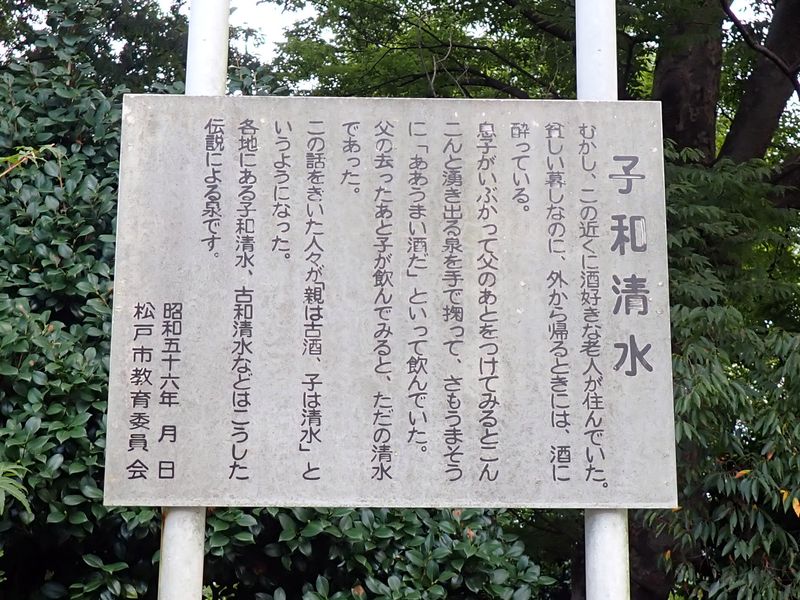 子和清水
むかし、この近くに酒好きな老人が住んでいた。
貧しい暮しなのに、外から帰るときには、酒に
酔っている。
息子がいぶかって父のあとをつけてみるとこん
こんと湧き出る泉を手で掬って、さもうまそう
に「ああうまい酒だ」といって飲んでいた。
父の去ったあと子が飲んでみると、ただの清水
であった。
この話をきいた人々が「親は古酒、子は清水」と
いうようになった。
各地にある子和清水、古和清水などはこうした
伝説による泉です。
昭和五十六年　月　日
松戸市教育委員会